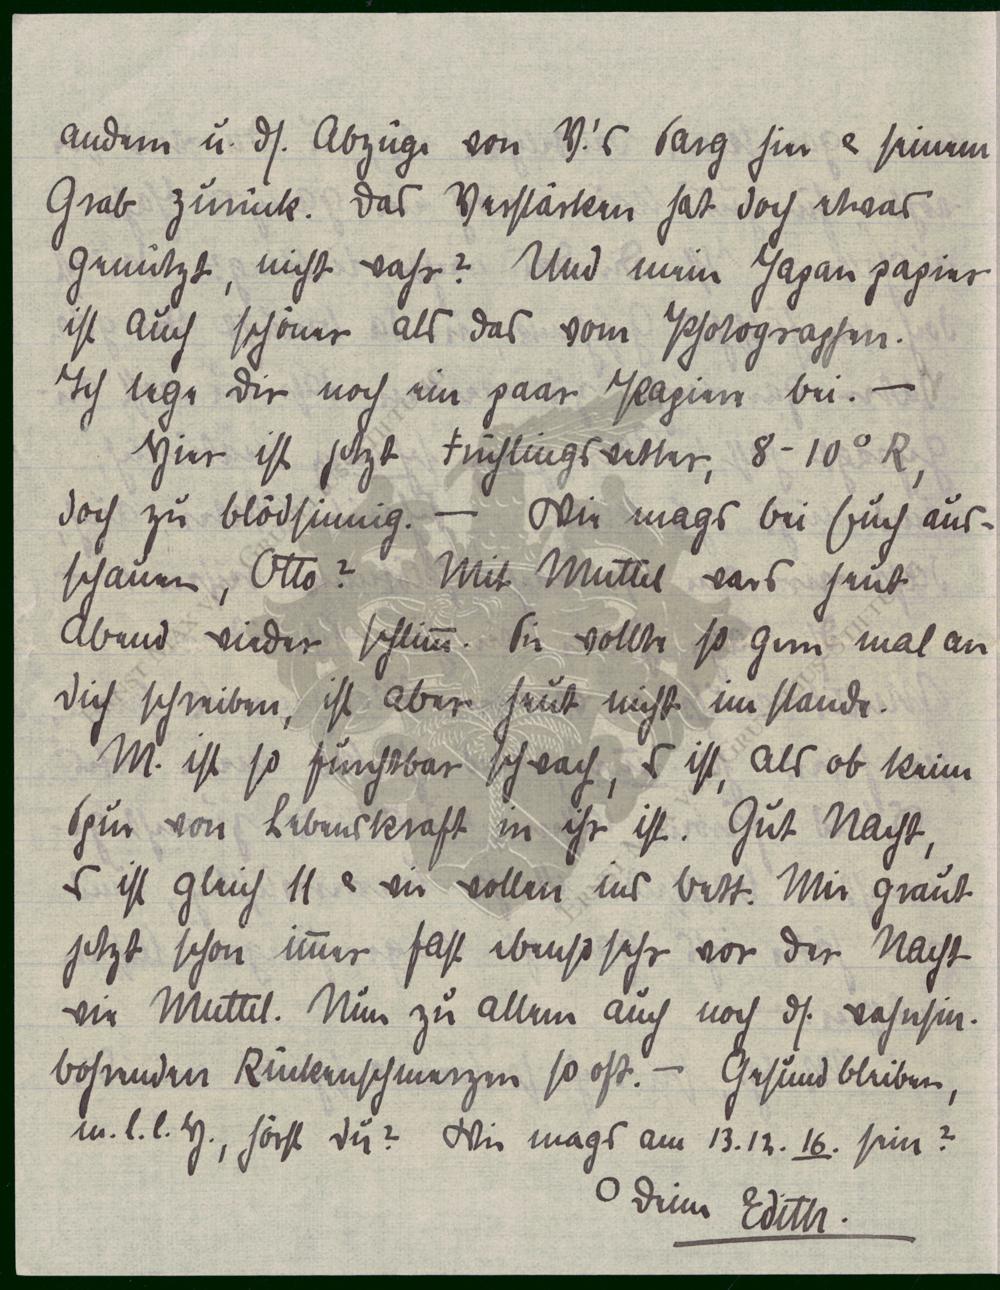 andern u. d. Abzüge von V.'s Sarg hier & seinem
Grab zurück. Das Verstärken hat doch etwas
genützt, nicht wahr? Und mein Japanpapier
ist auch schöner als das vom Photographen.
Ich lege Dir noch ein paar Papiere bei. —
Hier ist jetzt Frühlingswetter, 8-10° R,
doch zu blödsinnig. — Wie mags bei Euch aus-
schauen, Otto? Mit Muttel wars heut
Abend wieder schlim̅. Sie wollte so gern mal an
Dich schreiben, ist aber heut nicht im stande.
M. ist so furchtbar schwach, s ist, als ob keine
Spur von Lebenskraft in ihr ist. Gut Nacht,
s ist gleich 11 & wir wollen ins bett. Mir graut
jetzt schon im̅er fast ebenso sehr vor der Nacht
wie Muttel. Nun zu allem auch noch d. wahnsin.
bohrenden Rückenschmerzen so oft. — Gesund bleiben,
m. l. l. H., hörst Du? Wie mags am 13.12.16. sein?
O Deine Edith.